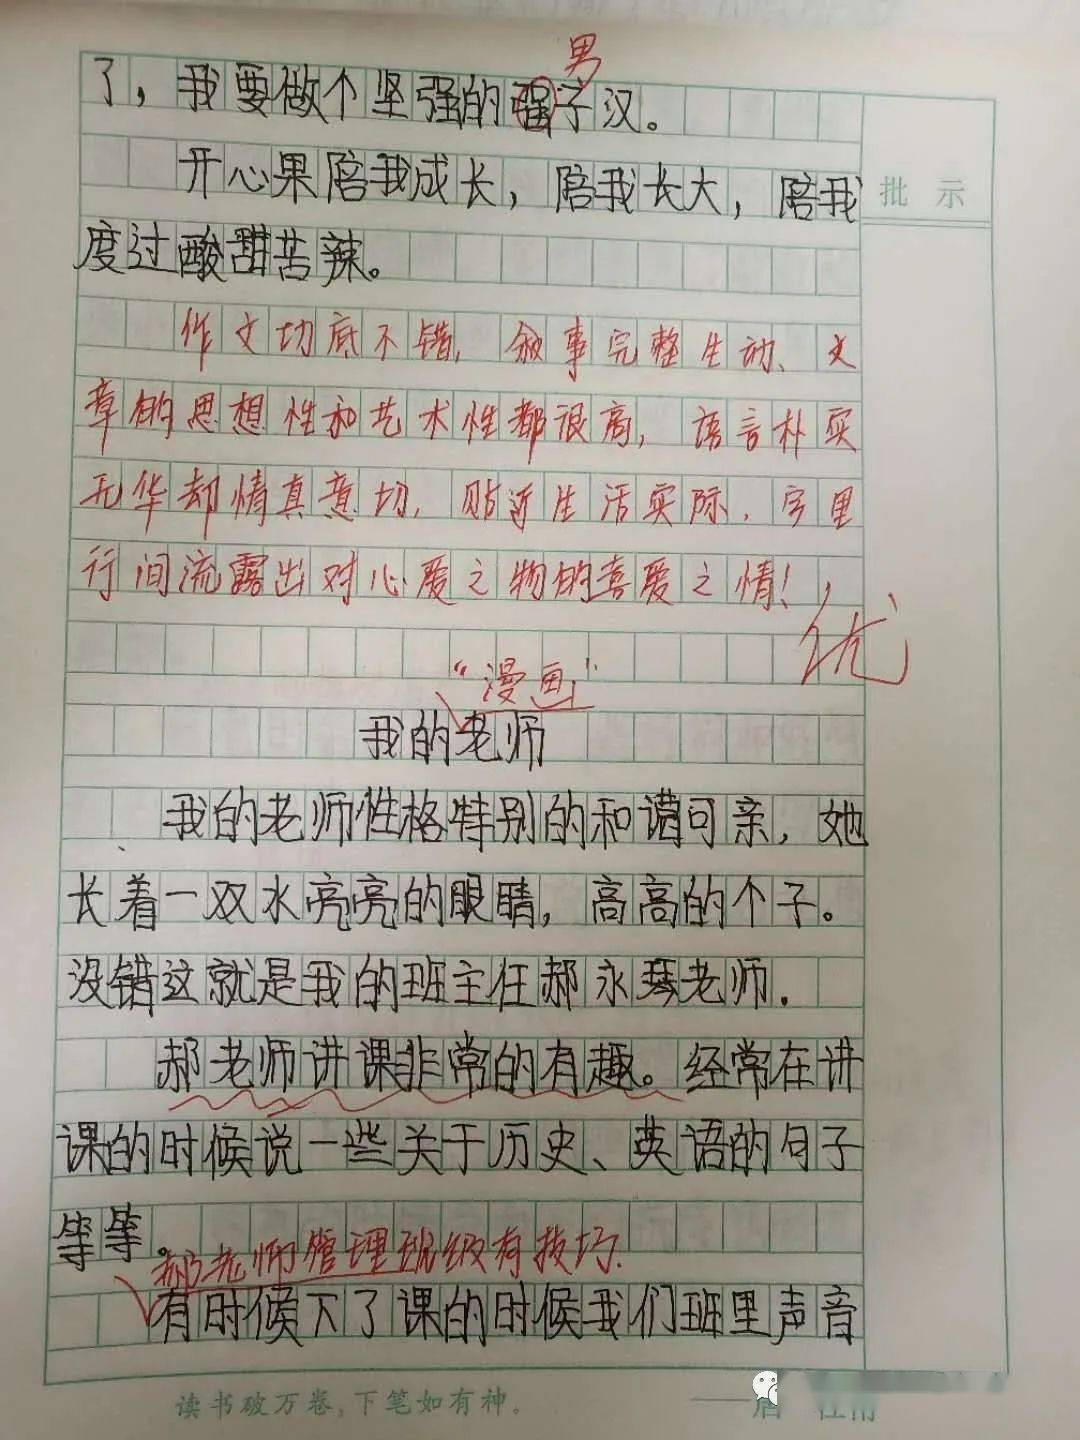 男
了，我要做个坚强的强子汉。
开心果陪我成长，陪我长大，陪我
度过酸甜苦辣。
批示
作文功底不错，叙事完整生动、文
章的思想性和艺术性都很高，语言朴实
无华却情真意切，贴近生活实际，字里
行间流露出对心爱之物的喜爱之情！
优
“漫画”
我的老师
我的老师性格特别的和谐可亲，她
长着一双水亮亮的眼睛，高高的个子。
没错这就是我的班主任郝永琴老师.
郝老师讲课非常的有趣。经常在讲
课的时候说一些关于历史、英语的句子
等等。
郝老师管理班级有技巧.
有时候下了课的时候我们班里声音
读书破万卷,下笔如有神。